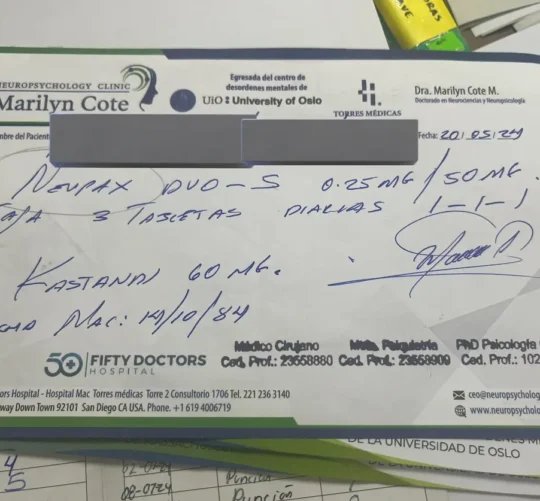 NEUROPSYCHOLOGY CLINIC
Marilyn Cote
Egresada del centro de
desordenes mentales de
UiO University of Oslo
TORRES MÉDICAS
Dra. Marilyn Cote M.
Doctorado en Neurociencias y Neuropsicología
mbre del Pacient
Fecha: 20/05/24
NEUPAX DUO-S 0.25 MG/50 MG.
3 TABLETAS DIARIAS 1-1-1
60 MG.
NAC: 14/10/84
50 FIFTY DOCTORS
HOSPITAL
Médico Cirujano
Ced. Prof.: 23558880
Mtria. Psiquiatría
Ced. Prof.: 23558909
PhD Psicología
Ced. Prof.: 102
ors Hospital - Hospital Mac Torres médicas Torre 2 Consultorio 1706 Tel. 221 236 3140
way Down Town 92101 San Diego CA USA. Phone. +1 619 4006719
ceo@neuropsycholog
www.neuropsycholo
DE LA UNIVERSIDAD DE OSLO
4
5
Punción
08-0724
Punción